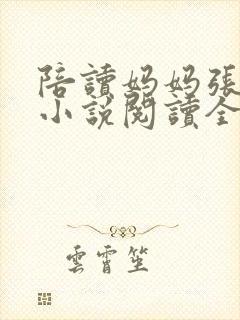 陪讀媽媽張
小說閱讀全
雲霄笙